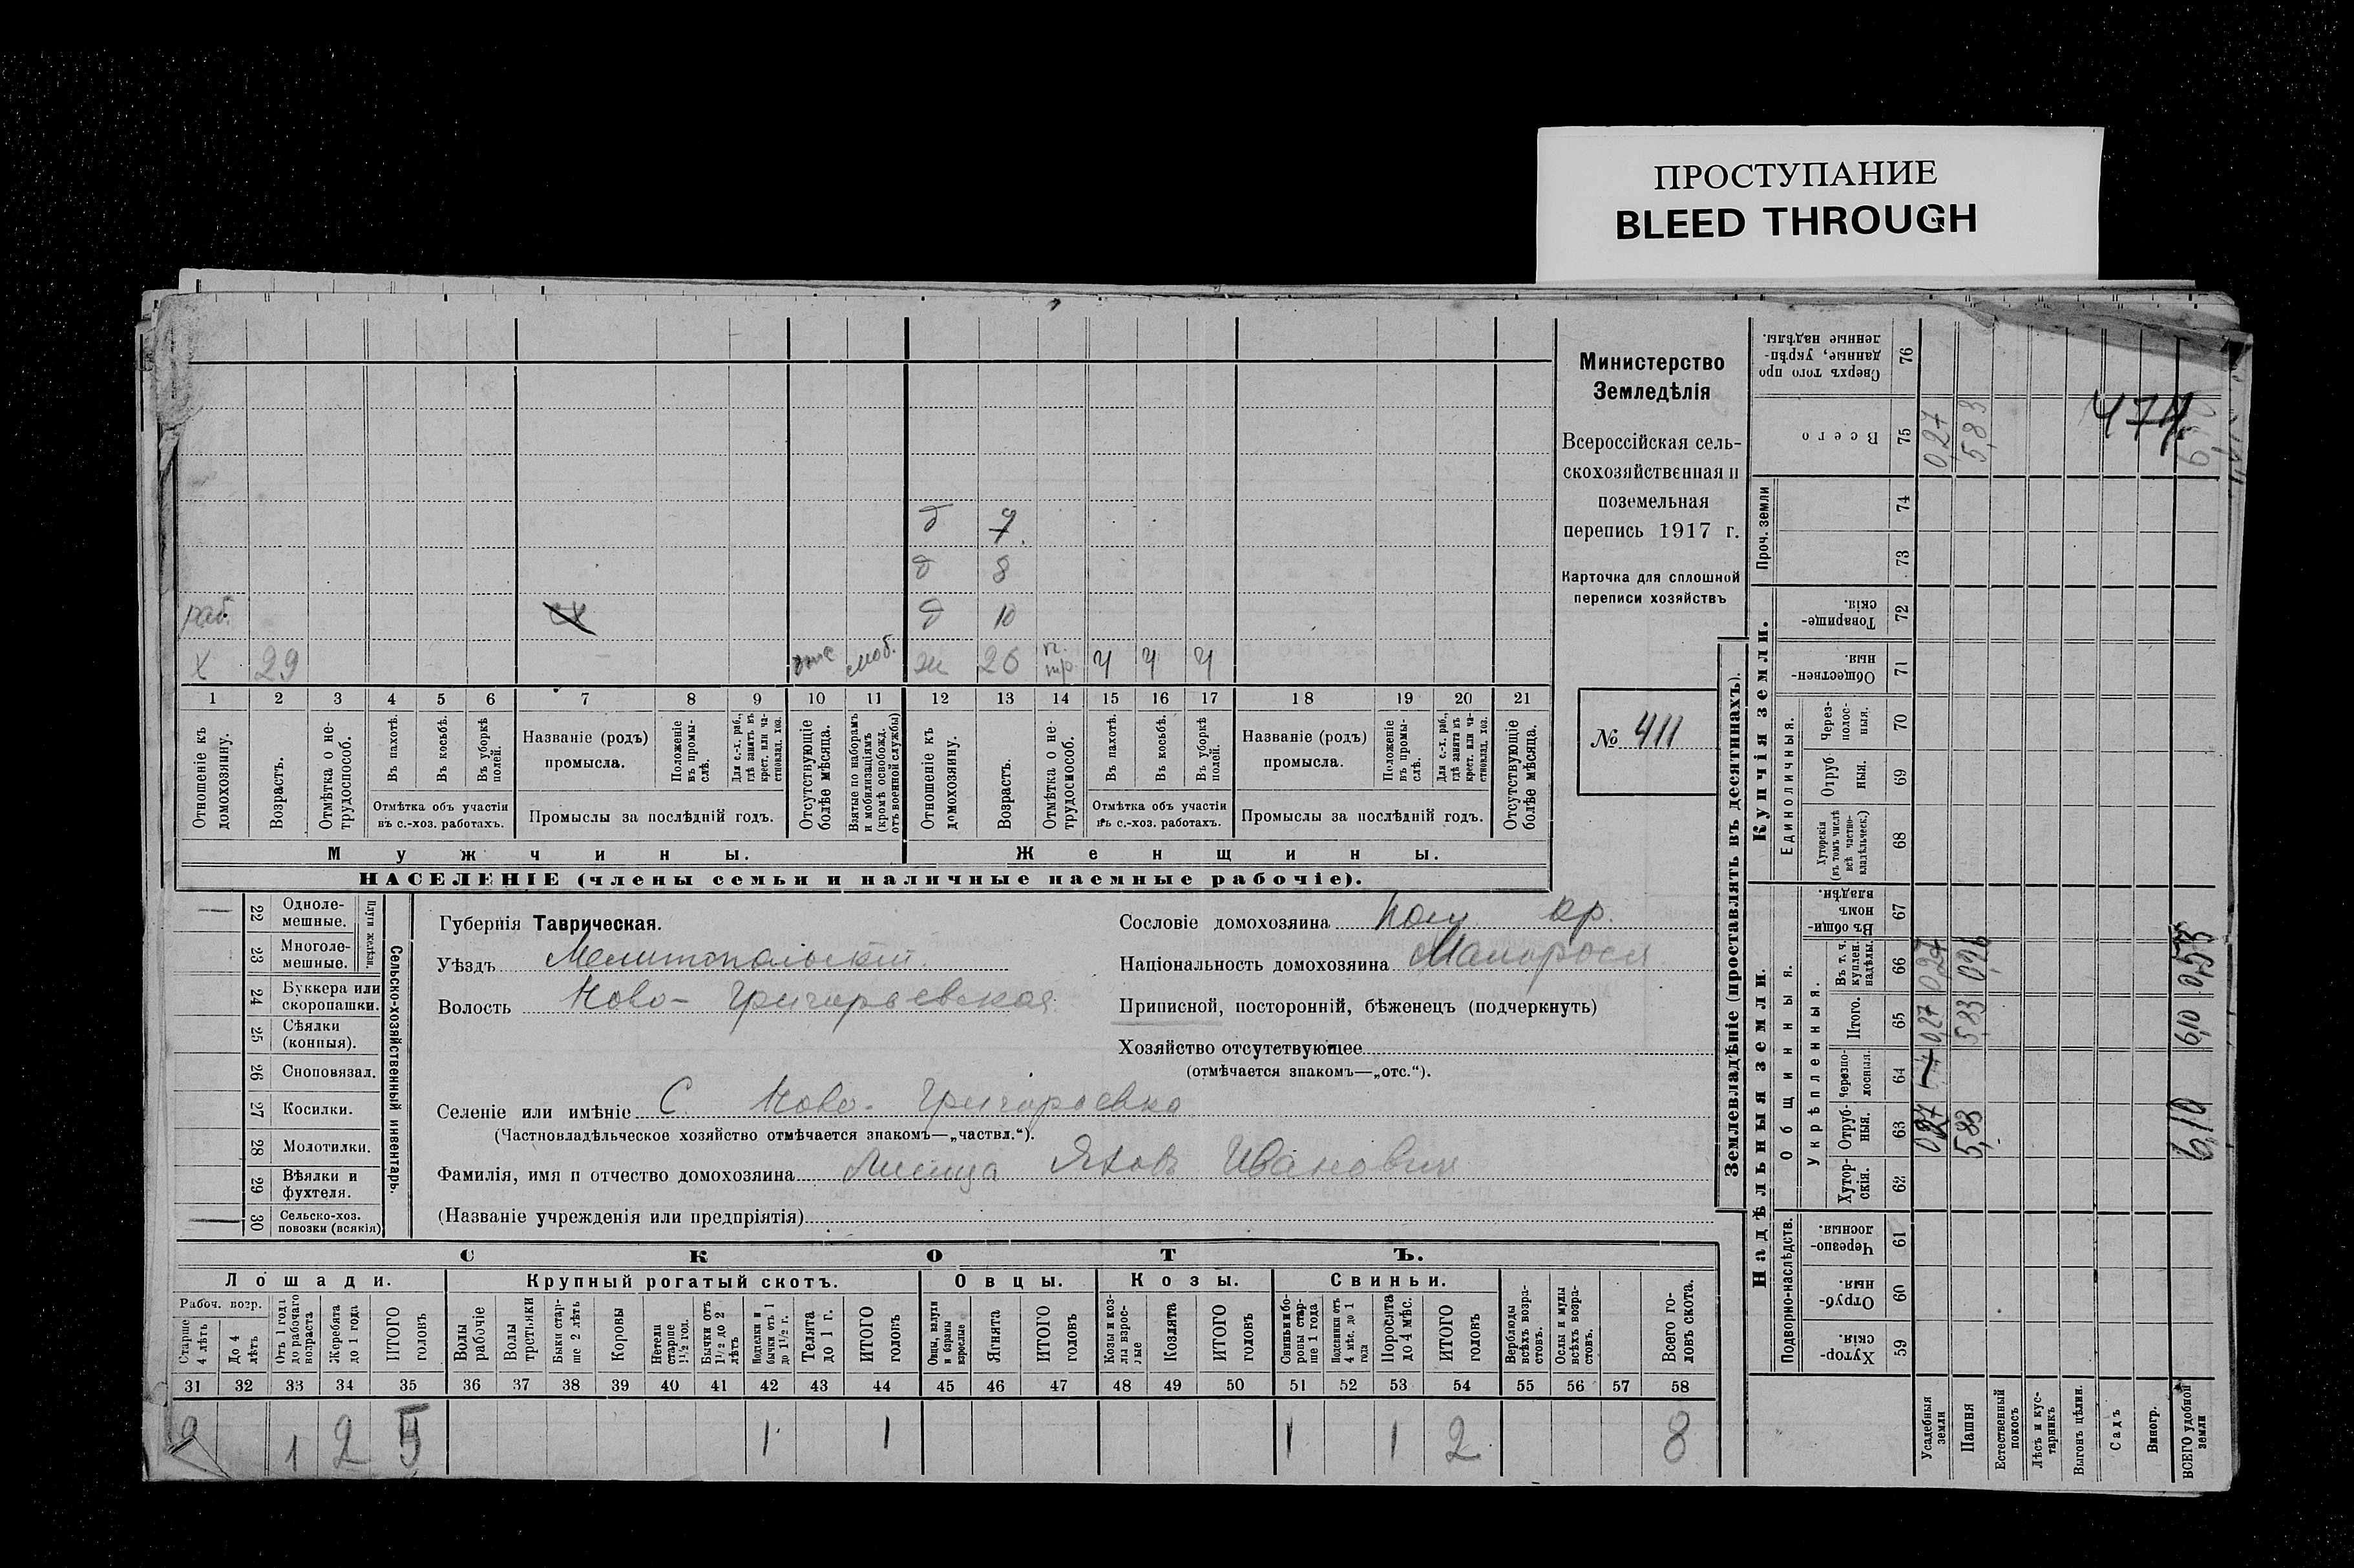 ПРОСТУПАНИЕ
BLEED THROUGH
Министерство
Земледѣлія
Всероссійская сель-
скохозяйственная и
поземельная
перепись 1917 г.
Карточка для сплошной
переписи хозяйствъ
№ 411
474
д 7
д 8
раб. д 10
х 29 моб. ж 26 ч ч ч
1 2 3 4 5 6 7 8 9 10 11 12 13 14 15 16 17 18 19 20 21
Отношеніе къ домохозяину.
Возрастъ.
Отмѣтка о не-трудоспособ.
Въ пахотѣ.
Въ косьбѣ.
Въ уборкѣ полей.
Отмѣтка объ участіи въ с.-хоз. работахъ.
Названіе (родъ) промысла.
Положеніе въ промы-слѣ.
Для с.-х. раб., гдѣ занятъ въ крест. или ча-стновлад. хоз.
Промыслы за послѣдній годъ.
Отсутствующіе болѣе мѣсяца.
Взятые по наборамъ и мобилизаціямъ (кромѣ освобожд. отъ военной службы)
Отношеніе къ домохозяину.
Возрастъ.
Отмѣтка о не-трудоспособ.
Въ пахотѣ.
Въ косьбѣ.
Въ уборкѣ полей.
Отмѣтка объ участіи въ с.-хоз. работахъ.
Названіе (родъ) промысла.
Положеніе въ промы-слѣ.
Для с.-х. раб., гдѣ занята въ крест. или ча-стновлад. хоз.
Промыслы за послѣдній годъ.
Отсутствующіе болѣе мѣсяца.
Мужчины. Женщины.
НАСЕЛЕНІЕ (члены семьи и наличные наемные рабочіе).
Сельско-хозяйственный инвентарь.
Плуги желѣзн.
22 Одноле-мешные.
23 Многоле-мешные.
24 Буккера или скоропашки.
25 Сѣялки (конныя).
26 Сноповязал.
27 Косилки.
28 Молотилки.
29 Вѣялки и фухтеля.
30 Сельско-хоз. повозки (всякія)
Губернія Таврическая.
Уѣздъ Мелитопольскій.
Волость Ново-Григорьевская
Сословіе домохозяина кр.
Національность домохозяина Малоросъ
Приписной, посторонній, бѣженецъ (подчеркнуть)
Хозяйство отсутствующее
(отмѣчается знакомъ—„отс.“).
Селеніе или имѣніе С. Ново-Григорьевка
(Частновладѣльческое хозяйство отмѣчается знакомъ—„частвл.“).
Фамилія, имя и отчество домохозяина Лисица Яковъ Ивановичъ
(Названіе учрежденія или предпріятія)
СКОТЪ.
Лошади. Крупный рогатый скотъ. Овцы. Козы. Свиньи.
Рабоч. возр.
Старше 4 лѣтъ
До 4 лѣтъ
Отъ 1 года до рабочаго возраста
Жеребята до 1 года
ИТОГО головъ
Волы рабочіе
Волы третьяки
Быки стар-ше 2 лѣтъ
Коровы
Нетели старше 1½ год.
Бычки отъ 1½ до 2 лѣтъ
Подтелки и бычки отъ 1 до 1½ г.
Телята до 1 г.
ИТОГО головъ
Овцы, валухи и бараны взрослые
Ягнята
ИТОГО головъ
Козы и коз-лы взрос-лые
Козлята
ИТОГО головъ
Свиньи и бо-ровы стар-ше 1 года
Подсвинки отъ 4 мѣс. до 1 года
Поросята до 4 мѣс.
ИТОГО головъ
Верблюды всѣхъ возра-стовъ.
Ослы и мулы всѣхъ возра-стовъ.
Всего го-ловъ скота.
31 32 33 34 35 36 37 38 39 40 41 42 43 44 45 46 47 48 49 50 51 52 53 54 55 56 57 58
2 1 2 5 1 1 1 1 2 8
Землевладѣніе (проставлять въ десятинахъ).
Надѣльныя земли. Купчія земли.
Подворно-наслѣдств.
Общинныя.
Укрѣпленныя.
Единоличныя.
Проч. земли
59 Хутор-скія.
60 Отруб-ныя.
61 Черезпо-лосныя.
62 Хутор-скія.
63 Отруб-ныя.
64 Черезпо-лосныя.
65 Итого.
66 Въ т. ч. куплен. надѣлы.
67 Въ общи-номъ владѣн.
68 Хуторскія (въ томъ числѣ всѣ частно-владѣльческ.)
69 Отруб-ныя.
70 Через-полос-ныя.
71 Обществен-ныя.
72 Товарище-скія.
73
74
75 Всего
76 Сверхъ того про данные, укрѣп-ленные надѣлы.
Усадебныя земли 0,27 0,27 0,27 0,27
Пашня 5,83 5,83 5,83
Естественный покосъ
Лѣсъ и кус-тарникъ
Выгонъ цѣлин.
Садъ
Виногр.
ВСЕГО удобной земли 6,10 6,10